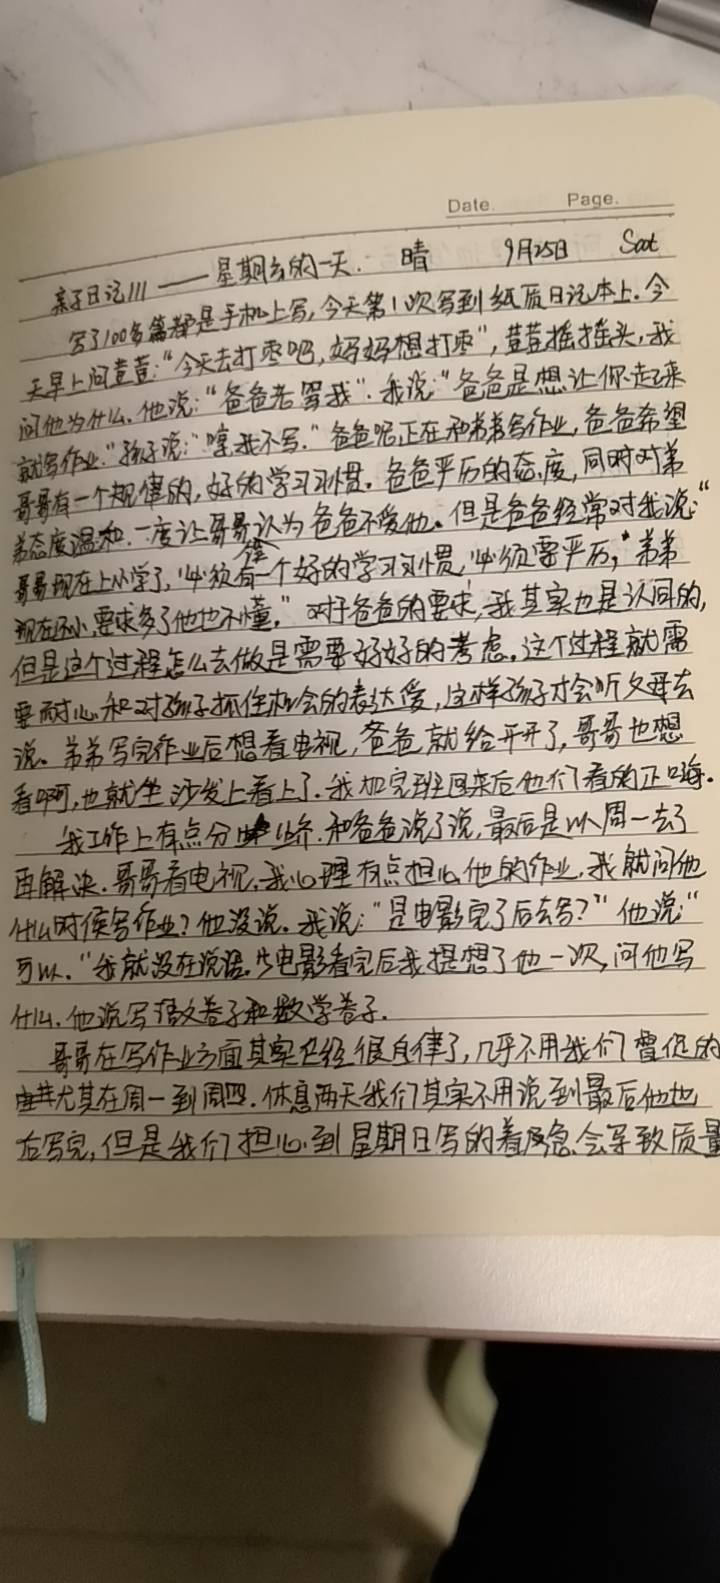 Date. Page.
亲子日记111——星期六的一天. 晴 9月25日 Sat
写了100多篇都是手机上写,今天第1次写到纸质日记本上.今
天早上问萱萱:“今天去打枣吧,妈妈想打枣”,萱萱摇摇头,我
问他为什么.他说:“爸爸老骂我”.我说:“爸爸是想让你走起来
就写作业.”孩子说:“哼,我不写.”爸爸呢正在和弟弟写作业,爸爸希望
哥哥有一个规律的,好的学习习惯.爸爸严历的态度,同时对弟
弟态度温和.一度让哥哥认为爸爸不爱他。但是爸爸经常对我说:“
哥哥现在上小学了,必须有一个好的学习习惯,必须要严历,弟弟
现在还小,要求多了他也不懂.”对于爸爸的要求,我其实也是认同的,
但是这个过程怎么去做是需要好好的考虑.这个过程就需
要耐心和对孩子抓住机会的表达爱,这样孩子才会听父母去
说。弟弟写完作业后想看电视,爸爸就给开开了,哥哥也想
看啊,也就坐沙发上看上了.我加完班回来后他们看的正嗨.
我工作上有点分歧.和爸爸说了说,最后是以周一去了
再解决.哥哥看电视,我心理有点担心他的作业,我就问他
什么时候写作业?他没说.我说:“是电影完了后去写?”他说:“
可以.”我就没在说话.电影看完后我提想了他一次,问他写
什么.他说写语文卷子和数学卷子.
哥哥在写作业方面其实已经很自律了,几乎不用我们督促的
尤其在周一到周四.休息两天我们其实不用说到最后他也
写完,但是我们担心到星期日写的着急会导致质量